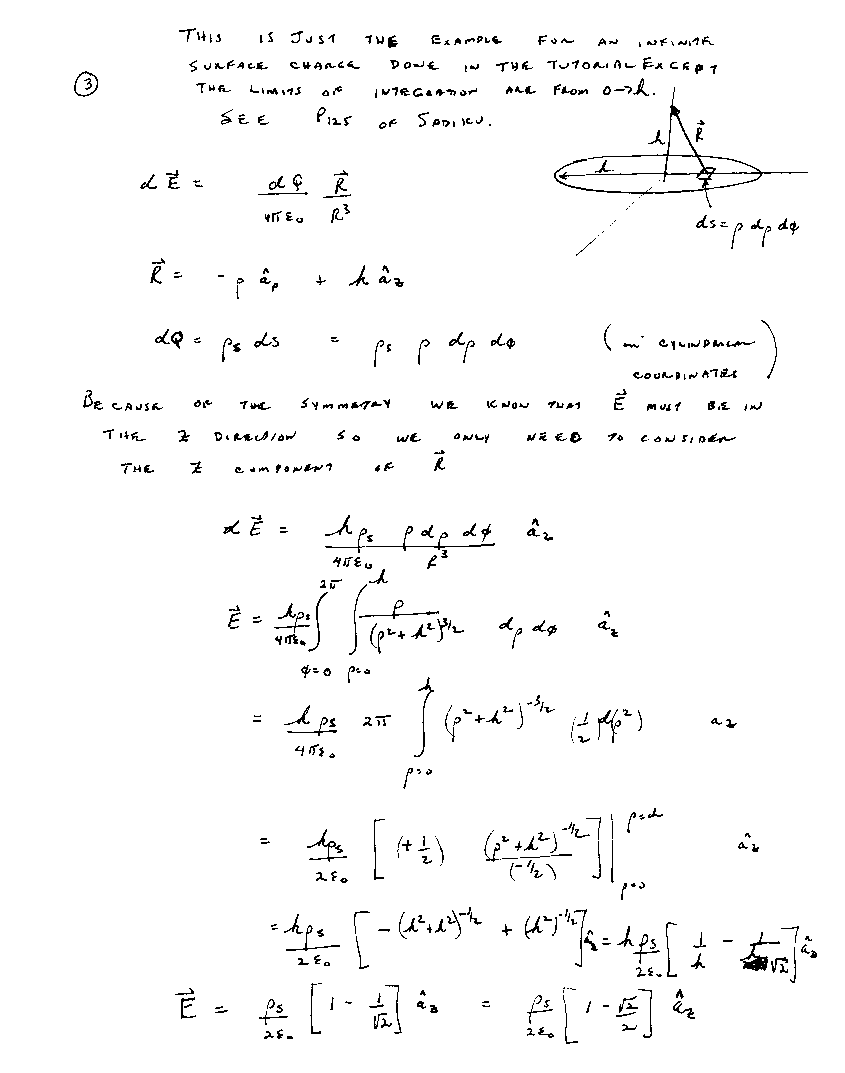 THIS IS JUST THE EXAMPLE FOR AN INFINITE
SURFACE CHARGE DONE IN THE TUTORIAL EXCEPT
③ THE LIMITS OF INTEGRATION ARE FROM 0→h.
SEE P125 OF SADIKU.
h R⃗
h
ds = ρ dρ dφ
dE⃗ = dQ/(4πε₀) R⃗/R³
R⃗ = -ρ â_ρ + h â_z
dQ = ρ_s ds = ρ_s ρ dρ dφ (in CYLINDRICAL
COORDINATES)
BECAUSE OF THE SYMMETRY WE KNOW THAT E⃗ MUST BE IN
THE Z DIRECTION SO WE ONLY NEED TO CONSIDER
THE Z COMPONENT OF R⃗
dE⃗ = hρ_s/(4πε₀) ρ dρ dφ/R³ â_z
E⃗ = hρ_s/(4πε₀) ∫_{φ=0}^{2π} ∫_{ρ=0}^{h} ρ/(ρ²+h²)^{3/2} dρ dφ â_z
= hρ_s/(4πε₀) 2π ∫_{ρ=0}^{h} (ρ²+h²)^{-3/2} (½ d(ρ²) a_z
= hρ_s/(2ε₀) [(+½) (ρ²+h²)^{-1/2}/(-½)] |_{ρ=0}^{ρ=h} â_z
= hρ_s/(2ε₀) [-(h²+h²)^{-1/2} + (h²)^{-1/2}] â_z = hρ_s/(2ε₀) [1/h - 1/(h√2)] â_z
E⃗ = ρ_s/(2ε₀) [1 - 1/√2] â_z = ρ_s/(2ε₀) [1 - √2/2] â_z